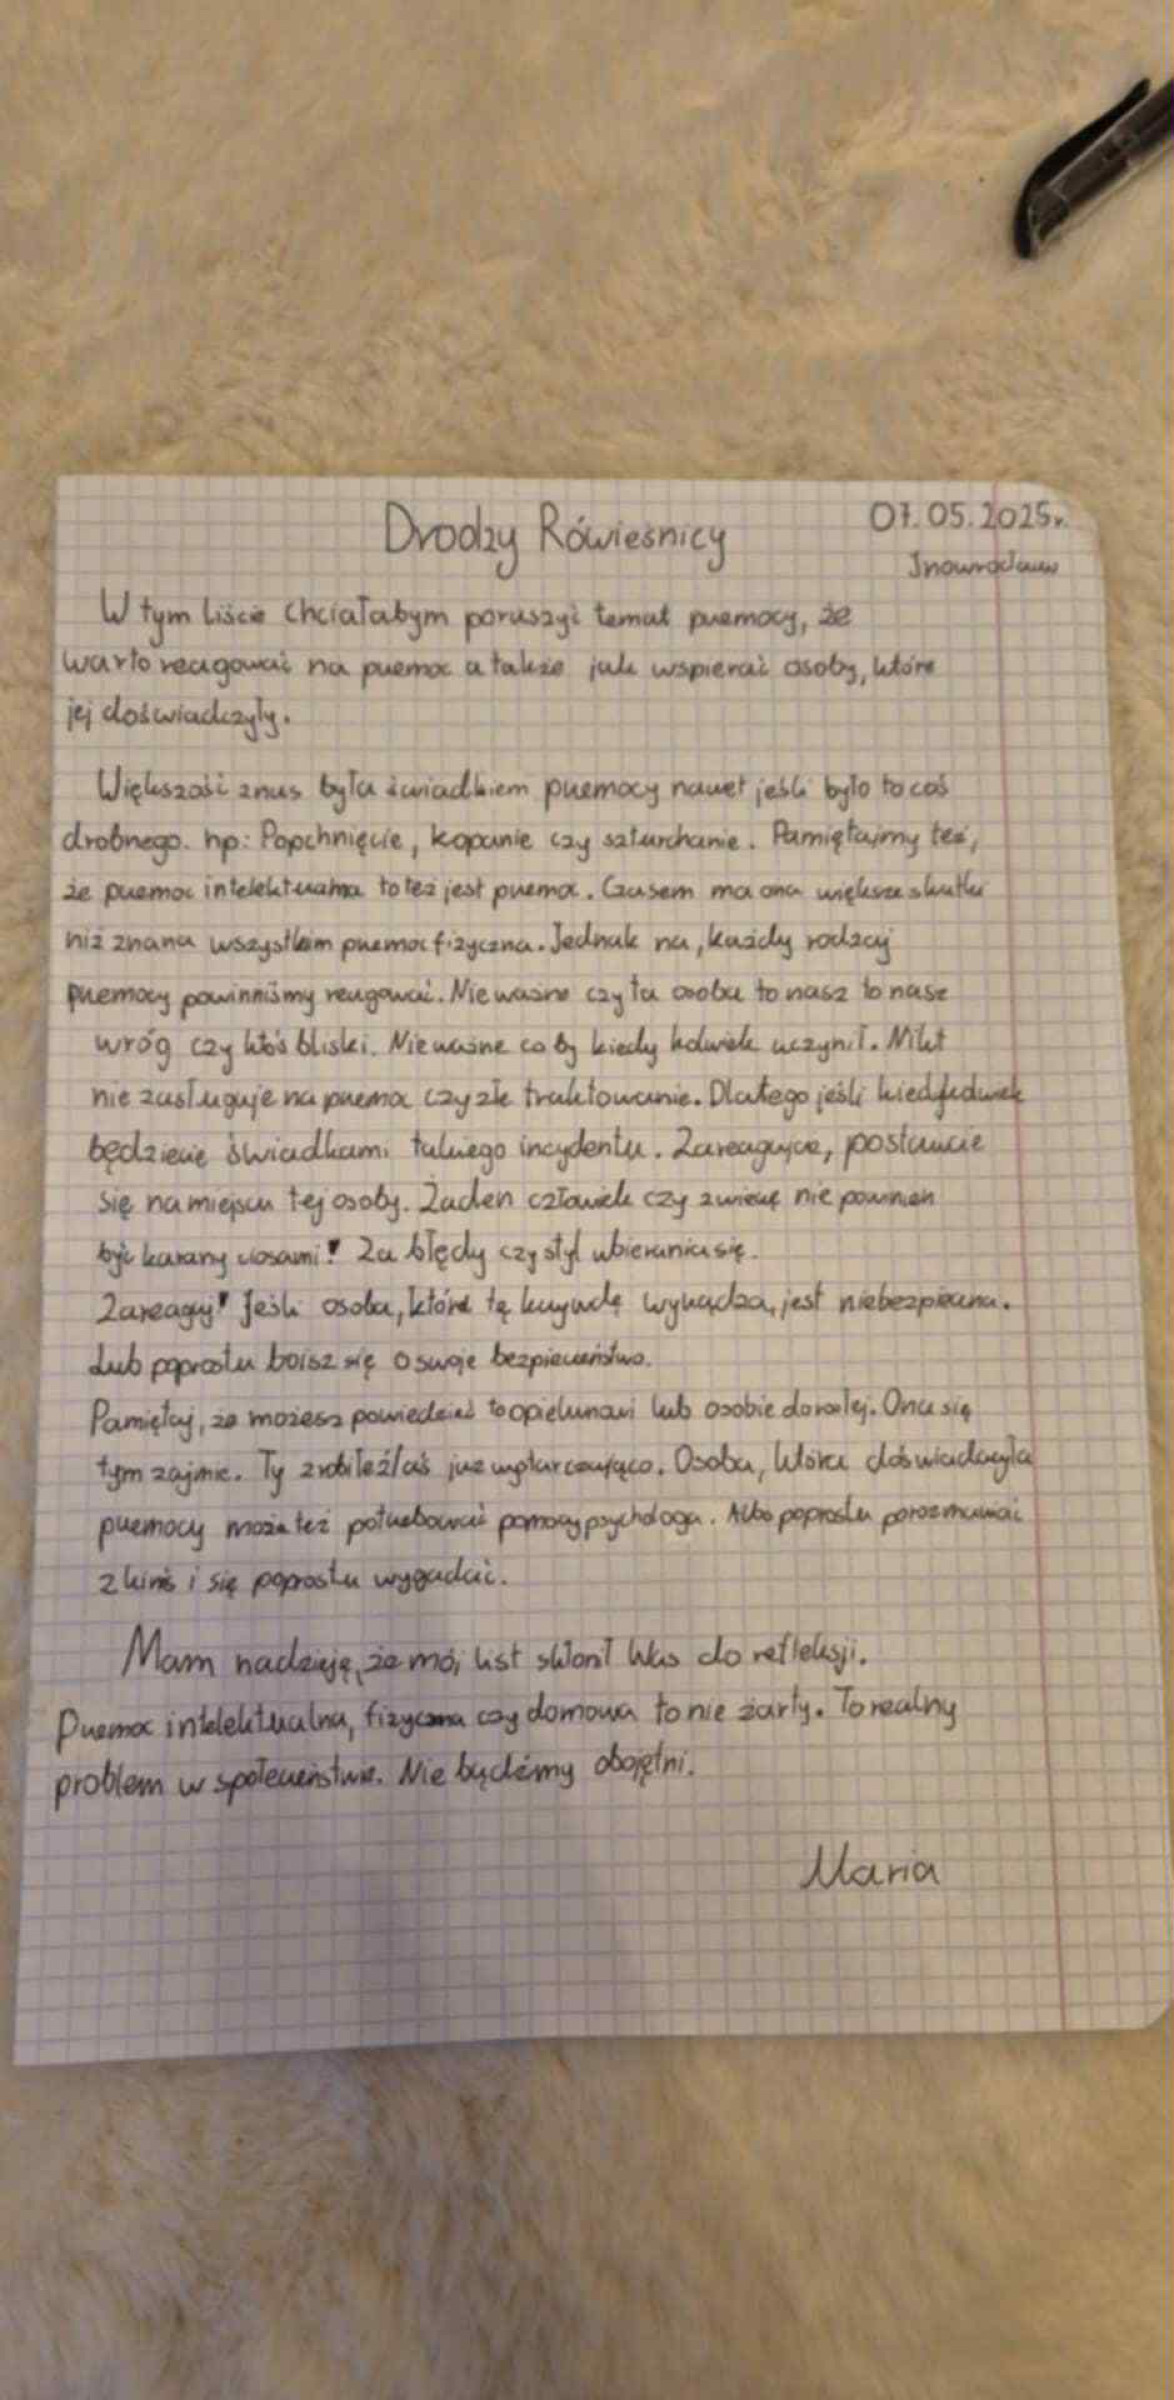 Drodzy Rówieśnicy
07.05.2025r.
Inowrocław
W tym liście chciałabym poruszyć temat przemocy, że
warto reagować na przemoc a także jak wspierać osoby, które
jej doświadczyły.
Większość z nas była świadkiem przemocy nawet jeśli było to coś
drobnego. np: Popchnięcie, kopanie czy szturchanie. Pamiętajmy też,
że przemoc intelektualna to też jest przemoc. Czasem ma ona większe skutki
niż znana wszystkim przemoc fizyczna. Jednak na, każdy rodzaj
przemocy powinniśmy reagować. Nie ważne czy ta osoba to nasz to nasz
wróg czy ktoś bliski. Nie ważne co by kiedy kolwiek uczynił. Nikt
nie zasługuje na przemoc czy złe traktowanie. Dlatego jeśli
będziecie świadkami takiego incydentu. Zareagujcie, postawcie
się na miejscu tej osoby. Żaden człowiek czy zwierzę nie powinien
być karany ciosami! Za błędy czy styl ubierania się.
Zareaguj! Jeśli osoba, która tę krzywdę wyrządza, jest niebezpieczna.
Lub poprostu boisz się o swoje bezpieczeństwo.
Pamiętaj, że możesz powiedzieć to opiekunowi lub osobie dorosłej. Ona się
tym zajmie. Ty zrobiłeź/aś już wystarczająco. Osoba, która doświadczyła
przemocy może też potrzebować pomocy psychologa. Albo poprostu porozmawiać
z kimś i się poprostu wygadać.
Mam nadzieję, że mój list skłonił Was do refleksji.
Przemoc intelektualna, fizyczna czy domowa to nie żarty. To realny
problem w społeczeństwie. Nie bądźmy obojętni.
Maria